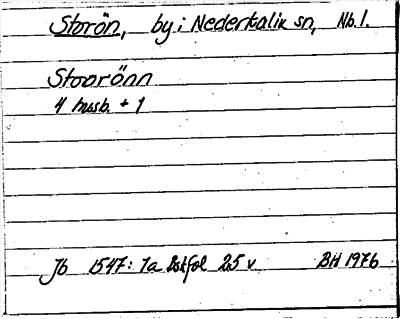 Storön, by i Nederkalix sn, Nb.l.
Stoorönn
4 husb. + 1
Jb 1547: 1a bstfol 25 v BH 1976